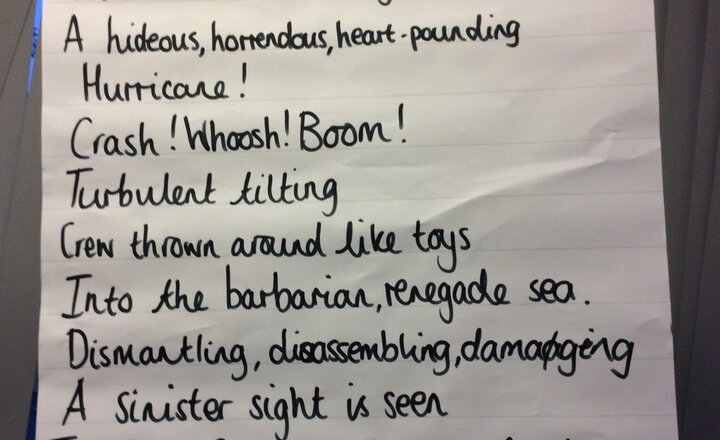 A hideous, horrendous, heart-pounding
Hurricane!
Crash! Whoosh! Boom!
Turbulent tilting
Crew thrown around like toys
Into the barbarian, renegade sea.
Dismantling, disassembling, damaging
A sinister sight is seen